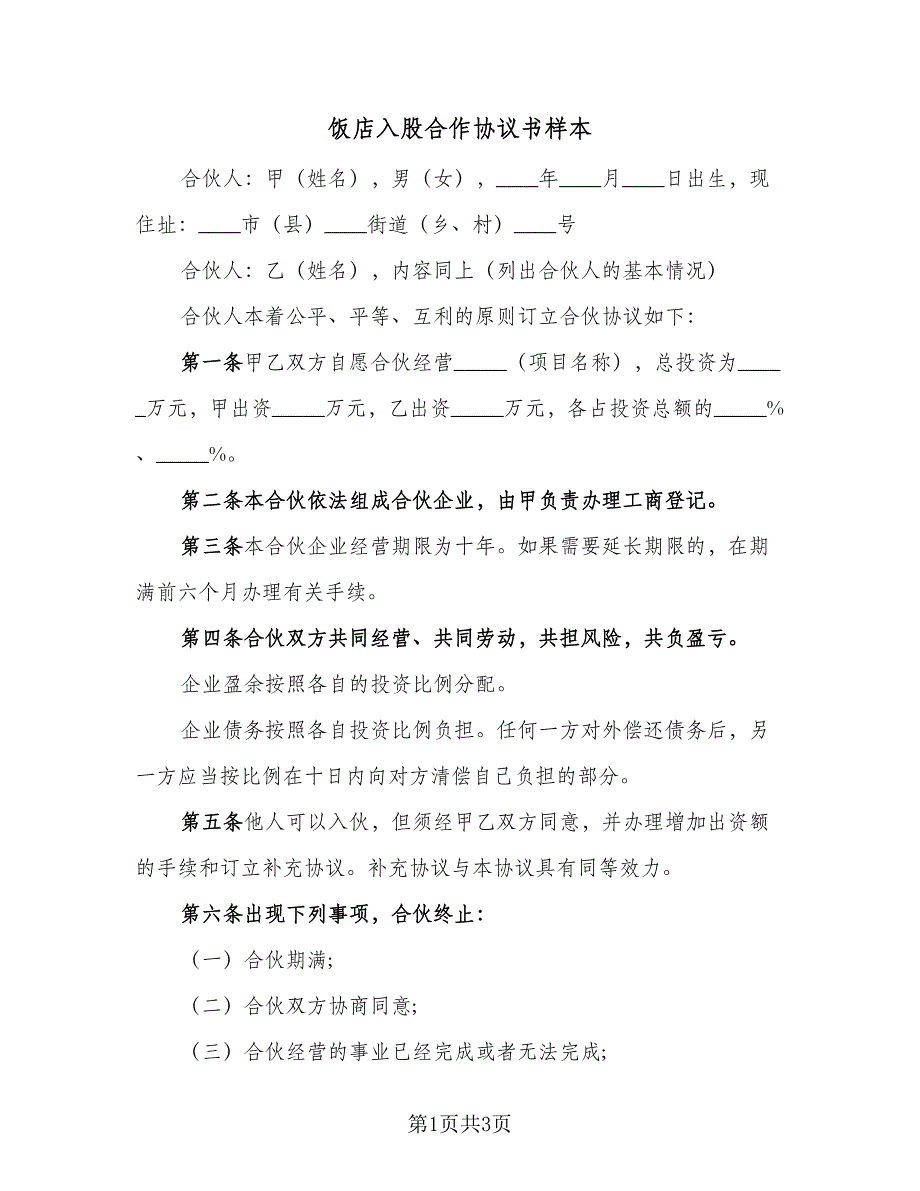 饭店入股合作协议书样本
合伙人：甲（姓名），男（女），____年____月____日出生，现
住址：____市（县）____街道（乡、村）____号
合伙人：乙（姓名），内容同上（列出合伙人的基本情况）
合伙人本着公平、平等、互利的原则订立合伙协议如下：
第一条甲乙双方自愿合伙经营_____（项目名称），总投资为____
_万元，甲出资_____万元，乙出资_____万元，各占投资总额的_____%
、_____%。
第二条本合伙依法组成合伙企业，由甲负责办理工商登记。
第三条本合伙企业经营期限为十年。如果需要延长期限的，在期
满前六个月办理有关手续。
第四条合伙双方共同经营、共同劳动，共担风险，共负盈亏。
企业盈余按照各自的投资比例分配。
企业债务按照各自投资比例负担。任何一方对外偿还债务后，另
一方应当按比例在十日内向对方清偿自己负担的部分。
第五条他人可以入伙，但须经甲乙双方同意，并办理增加出资额
的手续和订立补充协议。补充协议与本协议具有同等效力。
第六条出现下列事项，合伙终止：
（一）合伙期满;
（二）合伙双方协商同意;
（三）合伙经营的事业已经完成或者无法完成;
第1页共3页